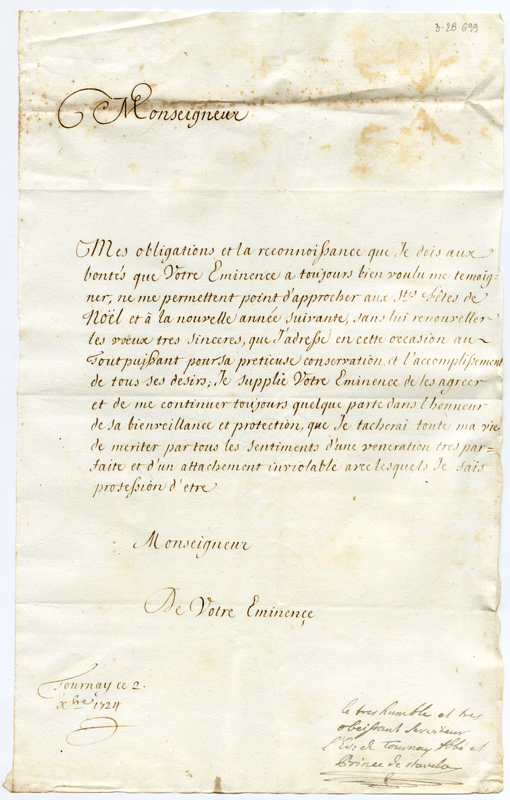 3-28-699
Monseigneur
Mes obligations et la reconnoissance que Je dois aux
bontés que Votre Eminence a toujours bien voulu me temoig=
ner, ne me permettent point d'approcher aux Stes fêtes de
Noël et à la nouvelle année suivante, sans lui renouveller
les vœux tres sinceres, que J'adresse en cette occasion au
Tout puissant pour sa pretieuse conservation, et l'accomplissement
de tous ses desirs; Je supplie Votre Eminence de les agreer
et de me continuer toujours quelque parte dans l'honneur
de sa bienveillance et protection, que Je tacherai toute ma vie
de meriter par tous les sentiments d'une veneration tres par=
faite et d'un attachement inviolable avec lesquels Je fais
profession d'etre
Monseigneur
De Votre Eminençe
Tournay ce 2.
Xbre 1724
le tres humble et tres
obeissant serviteur
l'Ev. de Tournay Abbé et
Prince de stavelo